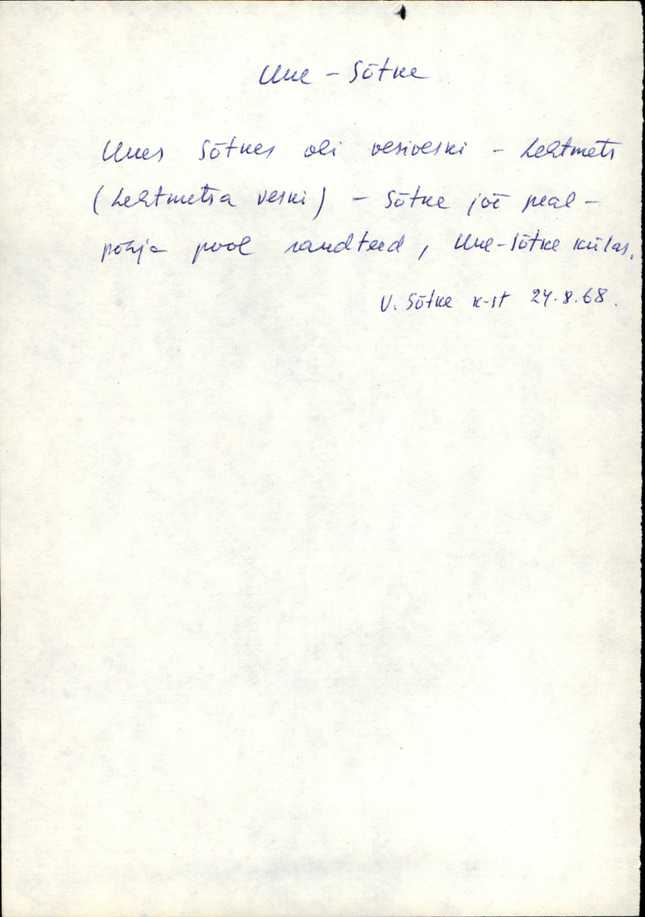 Uue - Sõtke
Uues Sõtkes oli vesiveski - Lehtmets
(Lehtmetsa veski) - Sõtke jõe peal -
põhja pool raudteed, Uue-Sõtke külas.
V. Sõtke k-st 24.8.68.